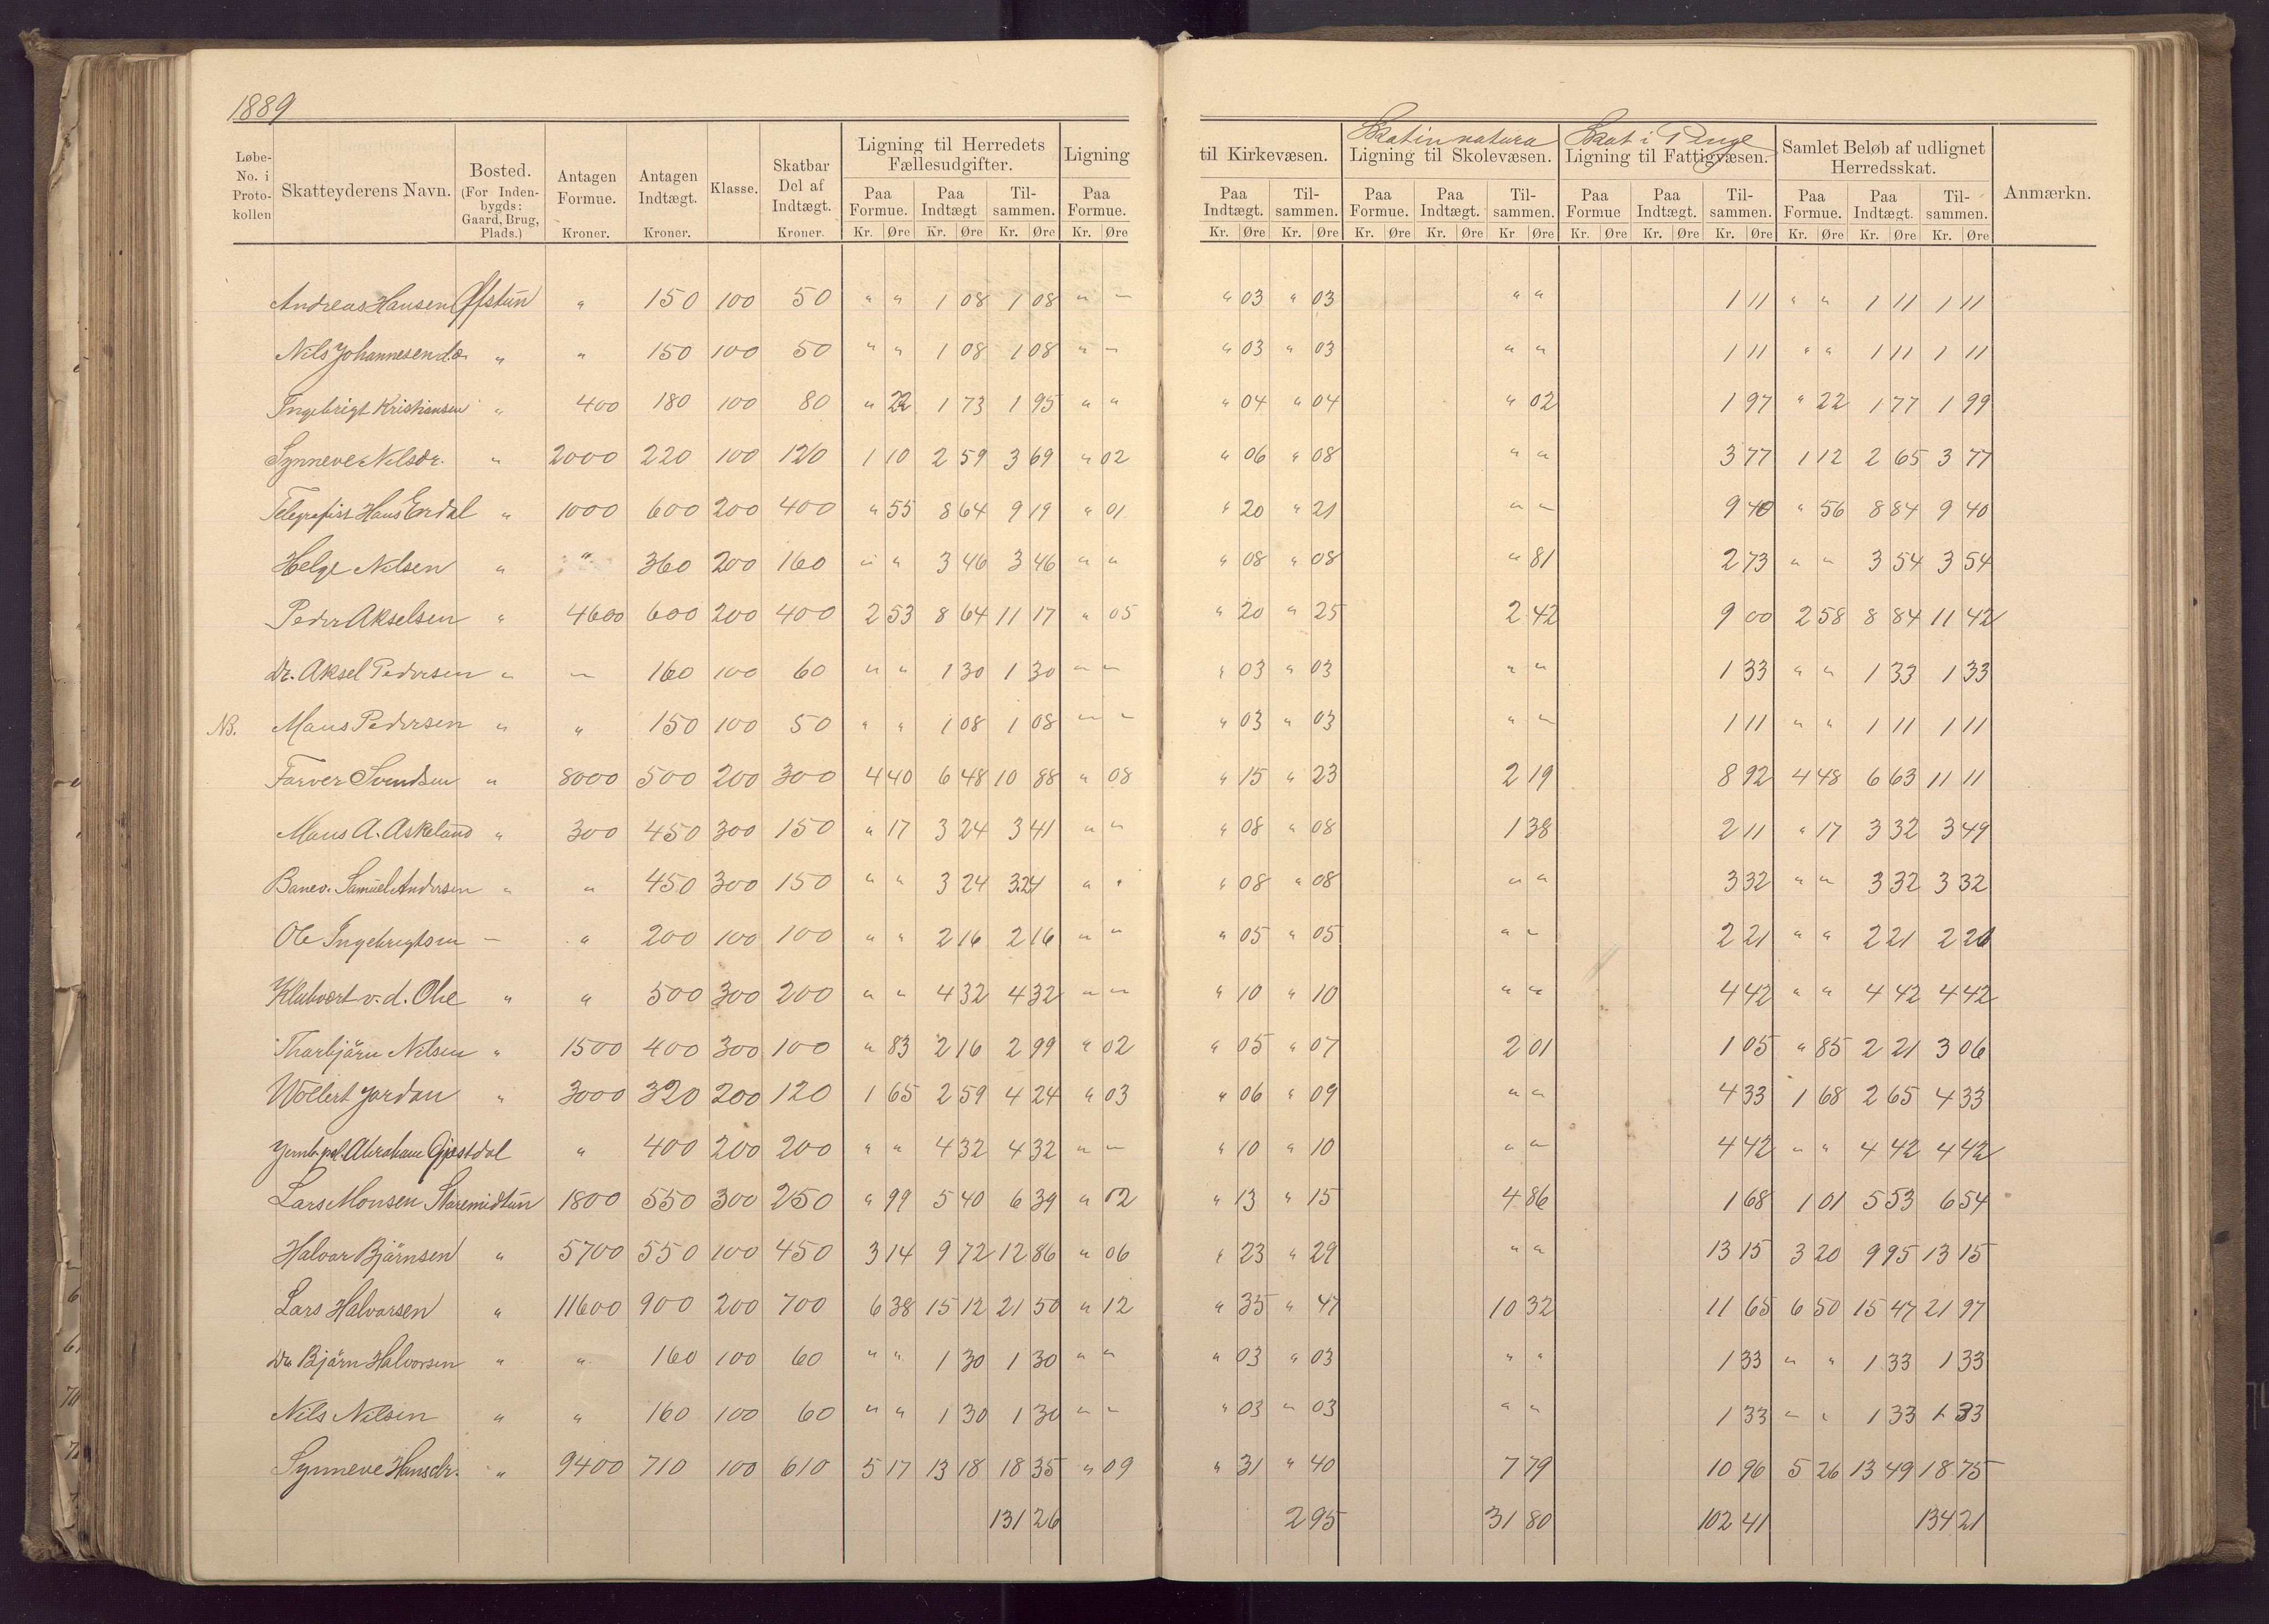 1889
Løbe-No. i Proto-kollen | Skatteyderens Navn. | Bosted. (For Inden-bygds: Gaard, Brug, Plads.) | Antagen Formue. Kroner. | Antagen Indtægt. Kroner. | Klasse. | Skatbar Del af Indtægt. Kroner. | Ligning til Herredets Fællesudgifter. Paa Formue. Kr. Øre | Paa Indtægt Kr. Øre | Til-sammen. Kr. Øre | Ligning Paa Formue. Kr. Øre | til Kirkevæsen. Paa Indtægt. Kr. Øre | Til-sammen. Kr. Øre | Skat in natura Ligning til Skolevæsen. Paa Formue. Kr. Øre | Paa Indtægt. Kr. Øre | Til-sammen. Kr Øre | Skat i Penge Ligning til Fattigvæsen. Paa Formue Kr. Øre | Paa Indtægt. Kr. Øre | Til-sammen. Kr. Øre | Samlet Beløb af udlignet Herredsskat. Paa Formue. Kr. Øre | Paa Indtægt. Kr. Øre | Til-sammen. Kr. Øre | Anmærkn.
Andreas Hansen Øfstun " 150 100 50 " " 1 08 1 08 " " " 03 " 03 " " 1 11 " " 1 11 1 11
Nils Johannesen do. " " 150 100 50 " " 1 08 1 08 " " " 03 " 03 " " 1 11 " " 1 11 1 11
Ingebrigt Kristiansen " 400 180 100 80 " 22 1 73 1 95 " " " 04 " 04 " 02 1 97 " 22 1 77 1 99
Synneve Nilsdr. " 2000 220 100 120 1 10 2 59 3 69 " 02 " 06 " 08 " " 3 77 1 12 2 65 3 77
Telegrafist Hans Erdal " 1000 600 200 400 " 55 8 64 9 19 " 01 " 20 " 21 " " 9 40 " 56 8 84 9 40
Helge Nilsen " " 360 200 160 " " 3 46 3 46 " " " 08 " 08 " 81 2 73 " " 3 54 3 54
Peder Akselsen " 4600 600 200 400 2 53 8 64 11 17 " 05 " 20 " 25 2 42 9 00 2 58 8 84 11 42
Dr. Aksel Pedersen " " 160 100 60 " " 1 30 1 30 " " " 03 " 03 " " 1 33 " " 1 33 1 33
NB. Mans Pedersen " " 150 100 50 " " 1 08 1 08 " " " 03 " 03 " " 1 11 " " 1 11 1 11
Farver Svendsen " 8000 500 200 300 4 40 6 48 10 88 " 08 " 15 " 23 2 19 8 92 4 48 6 63 11 11
Mans A. Askeland " 300 450 300 150 " 17 3 24 3 41 " " " 08 " 08 1 38 2 11 " 17 3 32 3 49
Banev. Samuel Andersen " " 450 300 150 " " 3 24 3 24 " " " 08 " 08 " " 3 32 " " 3 32 3 32
Ole Ingebrigtsen – " 200 100 100 " " 2 16 2 16 " " " 05 " 05 " " 2 21 " " 2 21 2 21
Klubvært v. d. Ohe " " 500 300 200 " " 4 32 4 32 " " " 10 " 10 " " 4 42 " " 4 42 4 42
Thorbjörn Nilsen " 1500 400 300 100 " 83 2 16 2 99 " 02 " 05 " 07 2 01 1 05 " 85 2 21 3 06
Wollert Jordan " 3000 320 200 120 1 65 2 59 4 24 " 03 " 06 " 09 " " 4 33 1 68 2 65 4 33
Abraham Gjestdal " 400 200 200 " " 4 32 4 32 " " " 10 " 10 " " 4 42 " " 4 42 4 42
Lars Monsen Staremidtun 1800 550 300 250 " 99 5 40 6 39 " 02 " 13 " 15 4 86 1 68 1 01 5 53 6 54
Halvar Björnsen " 5700 550 100 450 3 14 9 72 12 86 " 06 " 23 " 29 " " 13 15 3 20 9 95 13 15
Lars Halvorsen " 11600 900 200 700 6 38 15 12 21 50 " 12 " 35 " 47 10 32 11 65 6 50 15 47 21 97
Dr. Björn Halvorsen " " 160 100 60 " " 1 30 1 30 " " " 03 " 03 " " 1 33 " " 1 33 1 33
Nils Nilsen " " 160 100 60 " " 1 30 1 30 " " " 03 " 03 " " 1 33 " " 1 33 1 33
Synneve Hansdr. " 9400 710 100 610 5 17 13 18 18 35 " 09 " 31 " 40 7 79 10 96 5 26 13 49 18 75
131 26 2 95 31 80 102 41 134 21